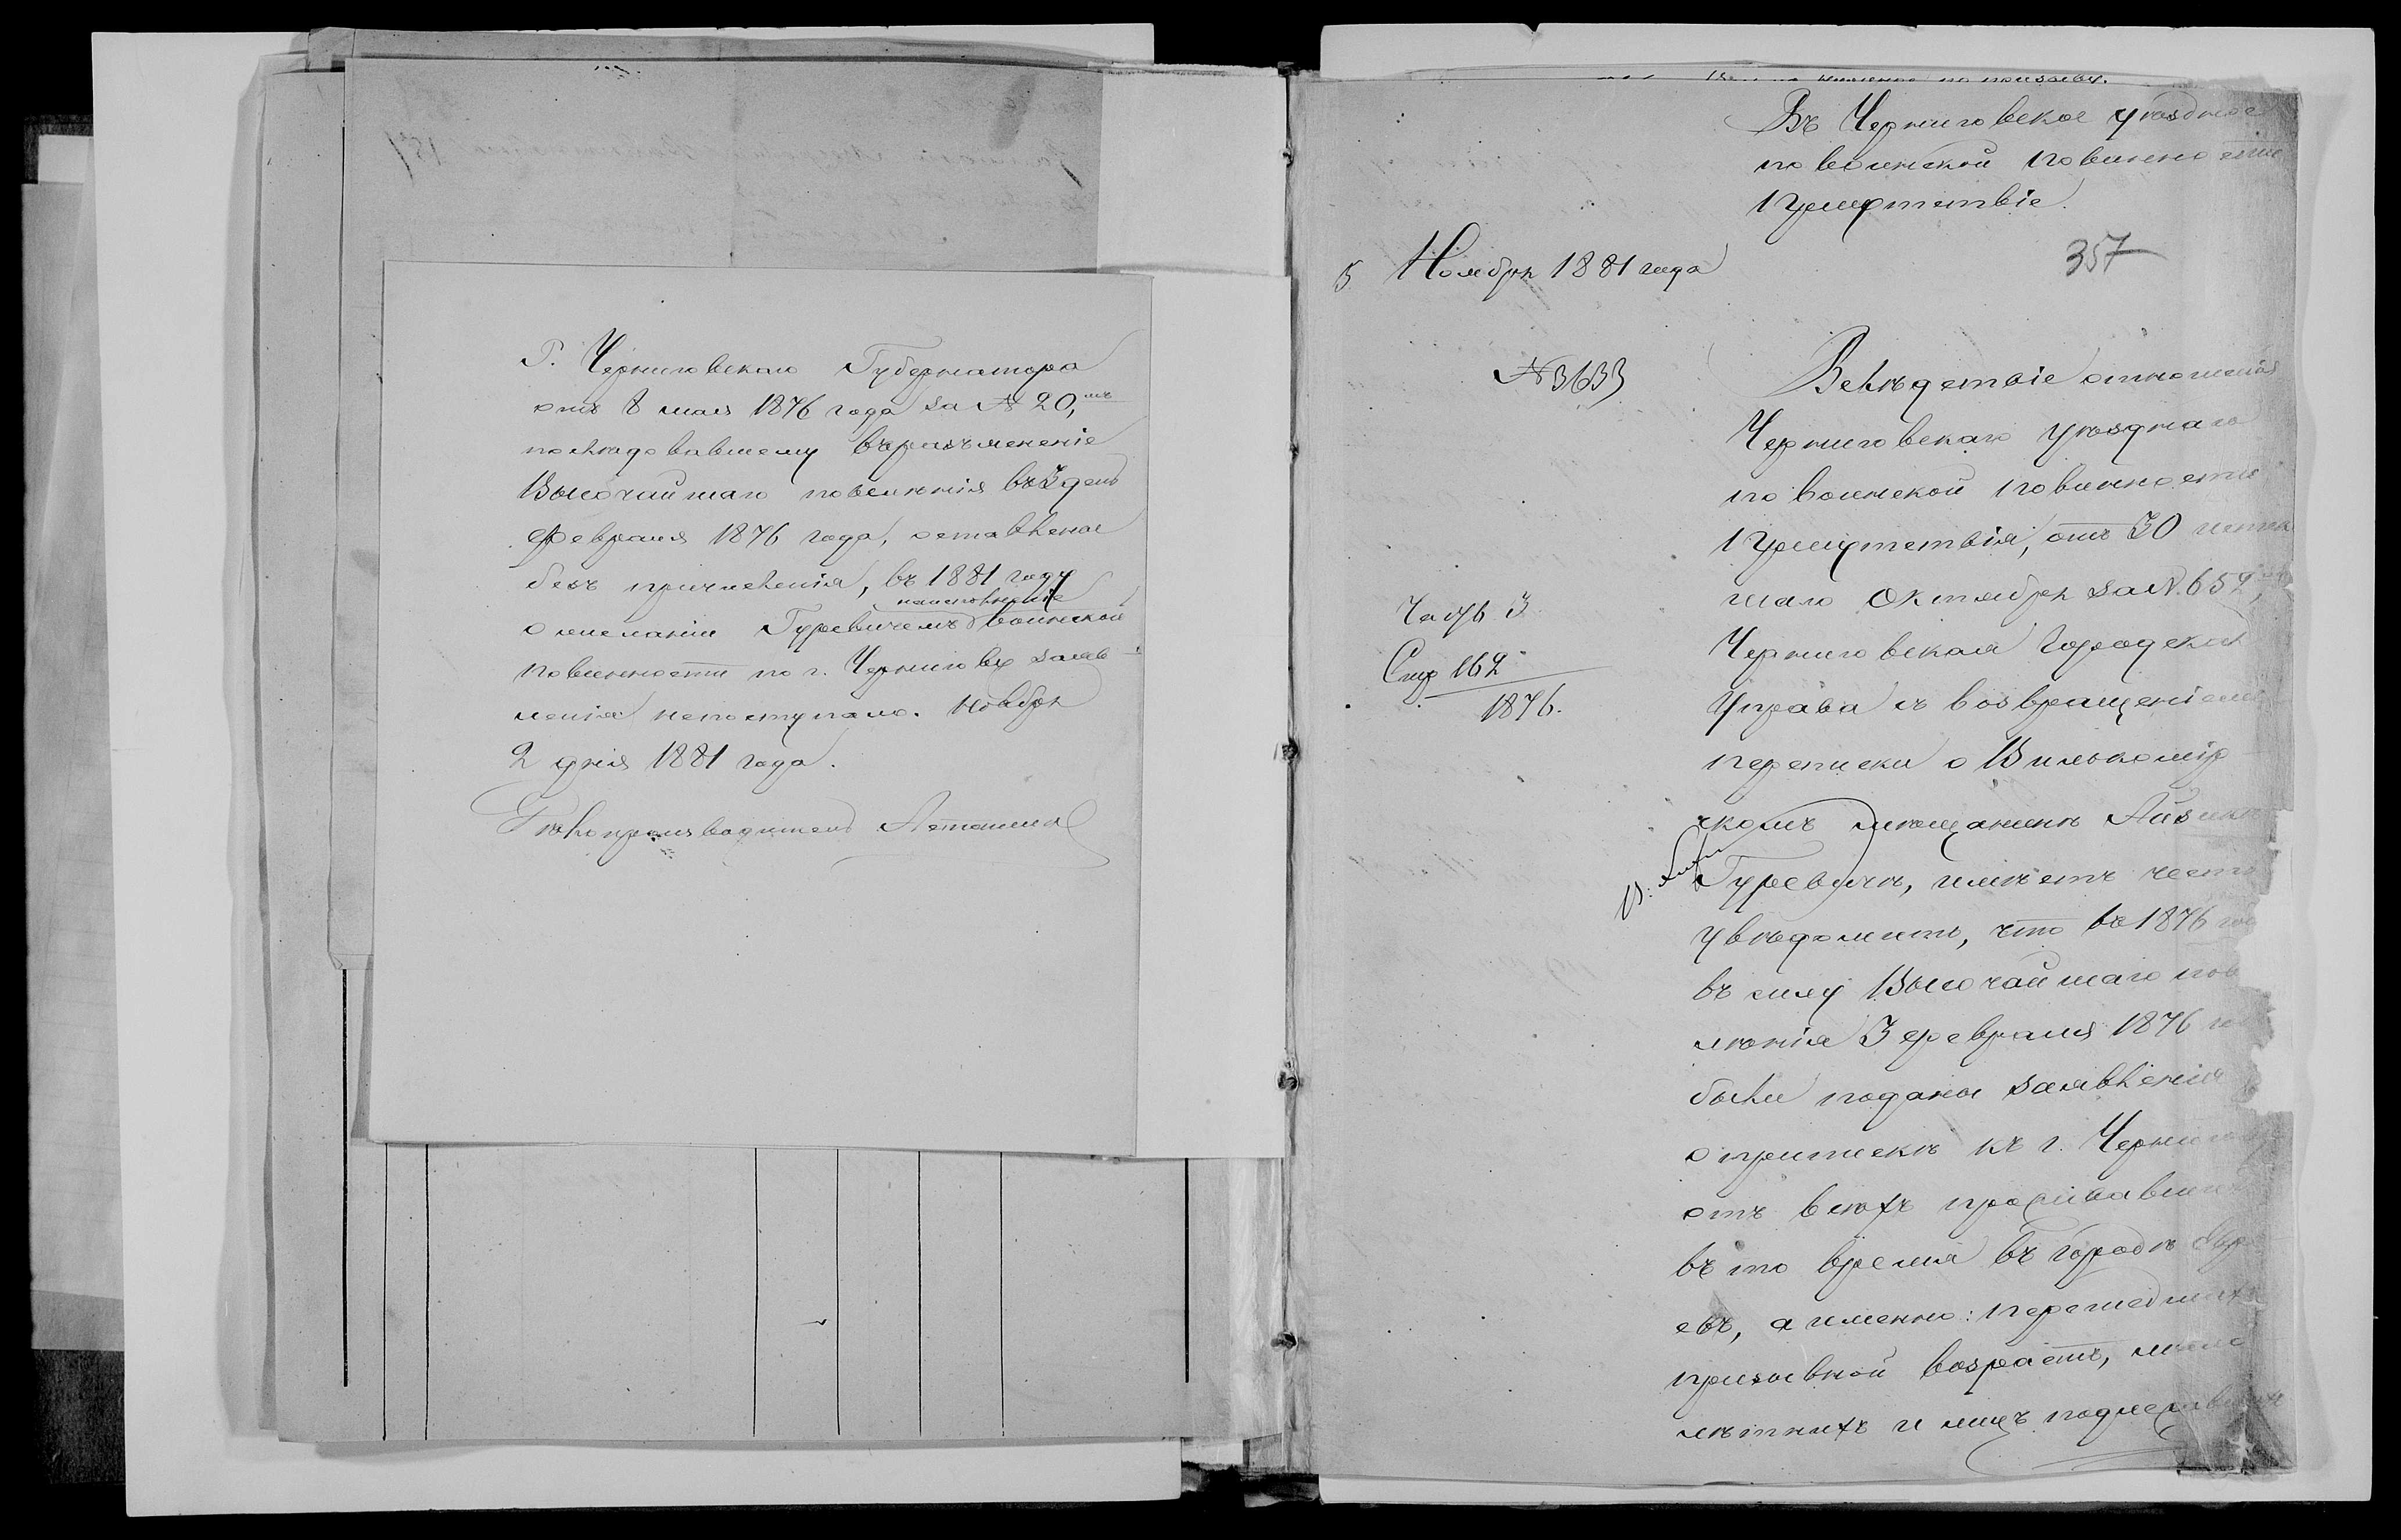 Г. Черниговскаго Губернатора
отъ 8 мая 1876 года за № 20,
послѣдовавшему въ разъясненіе
Высочайшаго повелѣнія въ 3 день
Февраля 1876 года, оставлена
безъ причисленія, въ 1881 году
о желаніи Гуревичемъ воинской
повинности по г. Чернигову заяв-
ленія непоступало. Ноября
2 дня 1881 года.
Дѣлопроизводитель
Въ Черниговское уѣздное
по воинской повинности
присутствіе.
357
5 Ноября 1881 года
№ 3633
Вслѣдствіе отношенія
Черниговскаго уѣзднаго
по воинской повинности
присутствія, отъ 30 истек
шаго Октября за № 652,
Часть 3
Стр 162
1876.
Черниговская Городская
Управа съ возвращеніемъ
переписки о Вилькомір
скомъ мѣщанинѣ Айзикѣ
Гуревичѣ, имѣетъ честь
увѣдомить, что въ 1876 го
въ силу Высочайшаго пов
лѣнія 3 февраля 1876 го
были поданы заявленія
о припискѣ къ г. Чернигову
отъ всѣхъ проживавшихъ
въ то время въ городѣ Евр
евъ, а именно: перешедшихъ
призывной возрастъ, мало
лѣтнихъ и лицъ